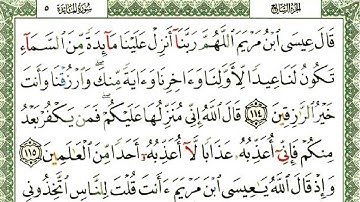 الجزء السابع سورة المائدة ٥
قَالَ عِيسَى ٱبْنُ مَرْيَمَ ٱللَّهُمَّ رَبَّنَآ أَنزِلْ عَلَيْنَا مَآئِدَةً مِّنَ ٱلسَّمَآءِ
تَكُونُ لَنَا عِيدًا لِّأَوَّلِنَا وَءَاخِرِنَا وَءَايَةً مِّنكَ ۖ وَٱرْزُقْنَا وَأَنتَ
خَيْرُ ٱلرَّٰزِقِينَ ١١٤ قَالَ ٱللَّهُ إِنِّى مُنَزِّلُهَا عَلَيْكُمْ ۖ فَمَن يَكْفُرْ بَعْدُ
مِنكُمْ فَإِنِّىٓ أُعَذِّبُهُۥ عَذَابًا لَّآ أُعَذِّبُهُۥٓ أَحَدًا مِّنَ ٱلْعَٰلَمِينَ ١١٥
وَإِذْ قَالَ ٱللَّهُ يَٰعِيسَى ٱبْنَ مَرْيَمَ ءَأَنتَ قُلْتَ لِلنَّاسِ ٱتَّخِذُونِى